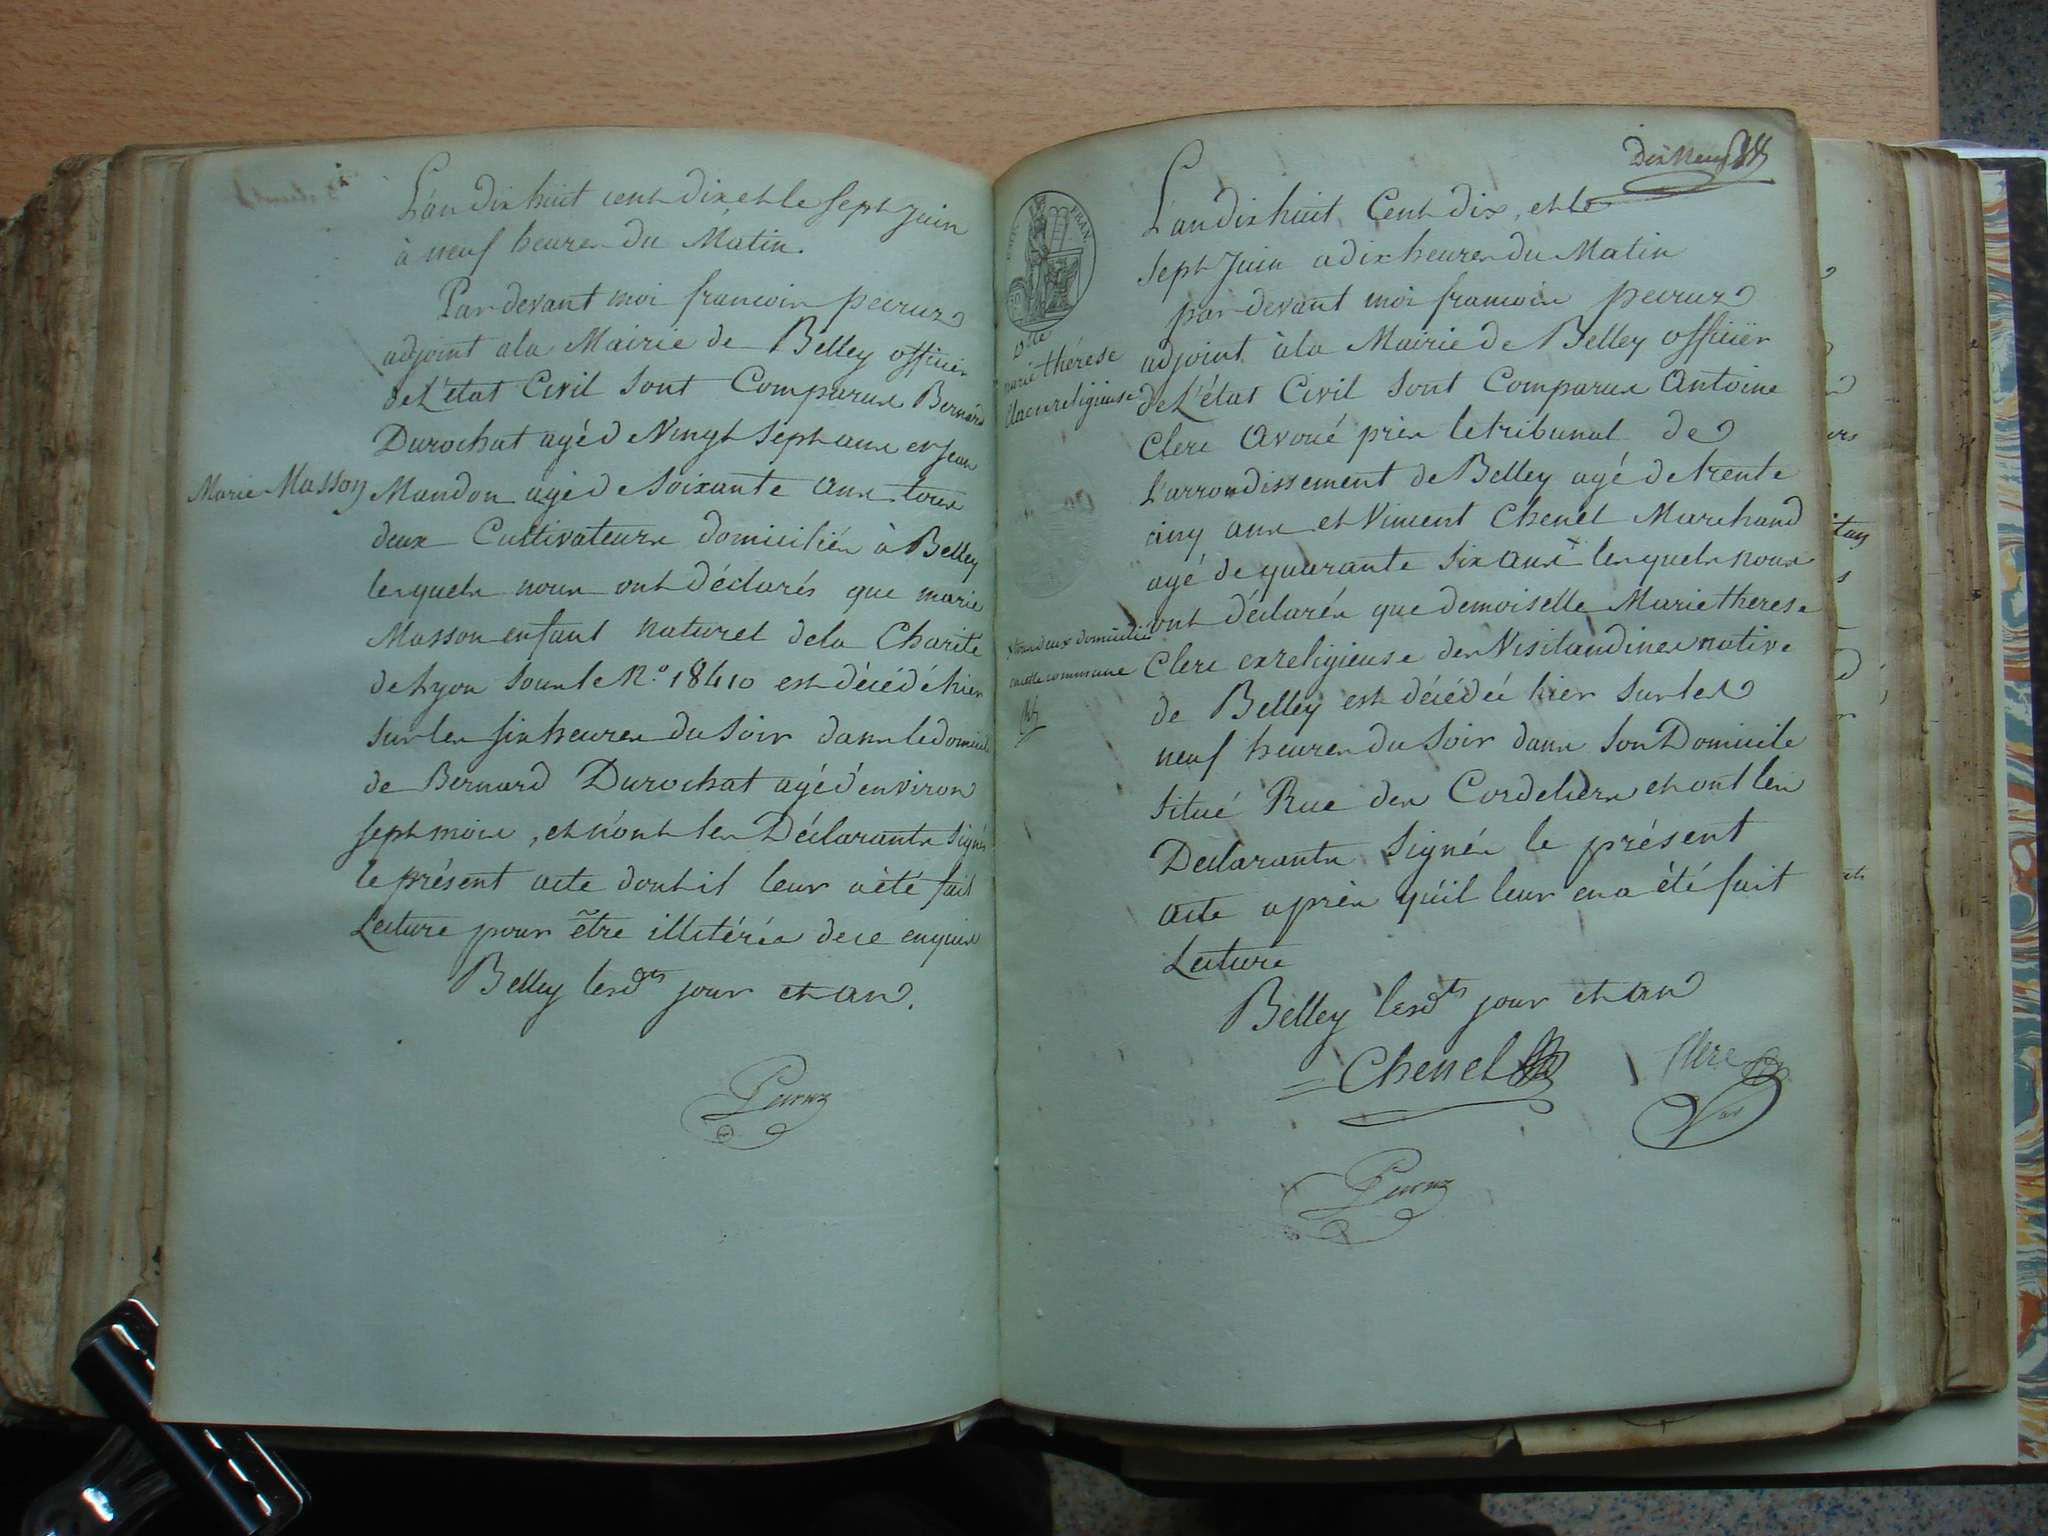 L'an dix huit cent dix et le sept Juin
à neuf heures du Matin.
Par devant moi francois peiruz
adjoint a la Mairie de Belley officier
de L'état Civil sont Comparus Bernard
Durochat agé de Vingt sept ans et Jean
Marie Masson
Mandon agé de soixante ans tous
deux Cultivateurs domiciliés à Belley
lesquels nous ont déclarés que marie
Masson enfant naturel de la Charité
de Lyon sous le N.o 18410 est décédé hier
sur les six heures du soir dans le domicile
de Bernard Durochat agé d'environ
sept mois, et n'ont les Déclarants signés
le présent acte dont il leur a été fait
Lecture pour être illitérés de ce enquis
Belley lesdts jour et an.
Peiruz
Dix Neuf
EMP. FRAN.
L'an dix huit Cent dix, et le
sept Juin a dix heures du Matin
par devant moi francois peiruz
adjoint à la Mairie de Belley officier
de L'état Civil sont Comparus Antoine
Clerc Avoué près le tribunal de
L'arrondissement de Belley agé de trente
cinq ans et Vincent Chenel Marchand
agé de quarante six ans x lesquels nous
ont déclarés que demoiselle Marie therese
Clerc exreligieuse des Visitandines native
de Belley est décédée hier sur les
neuf heures du soir dans son Domicile
situé Rue des Cordeliers et ont les
Déclarants signés le présent
acte après qu'il leur en a été fait
Lecture
Belley lesdts jour et an
Dlle
marie thérese
Clerc religieuse
x tous deux domiciliés
en cette commune
Chenel
Clerc
Peiruz